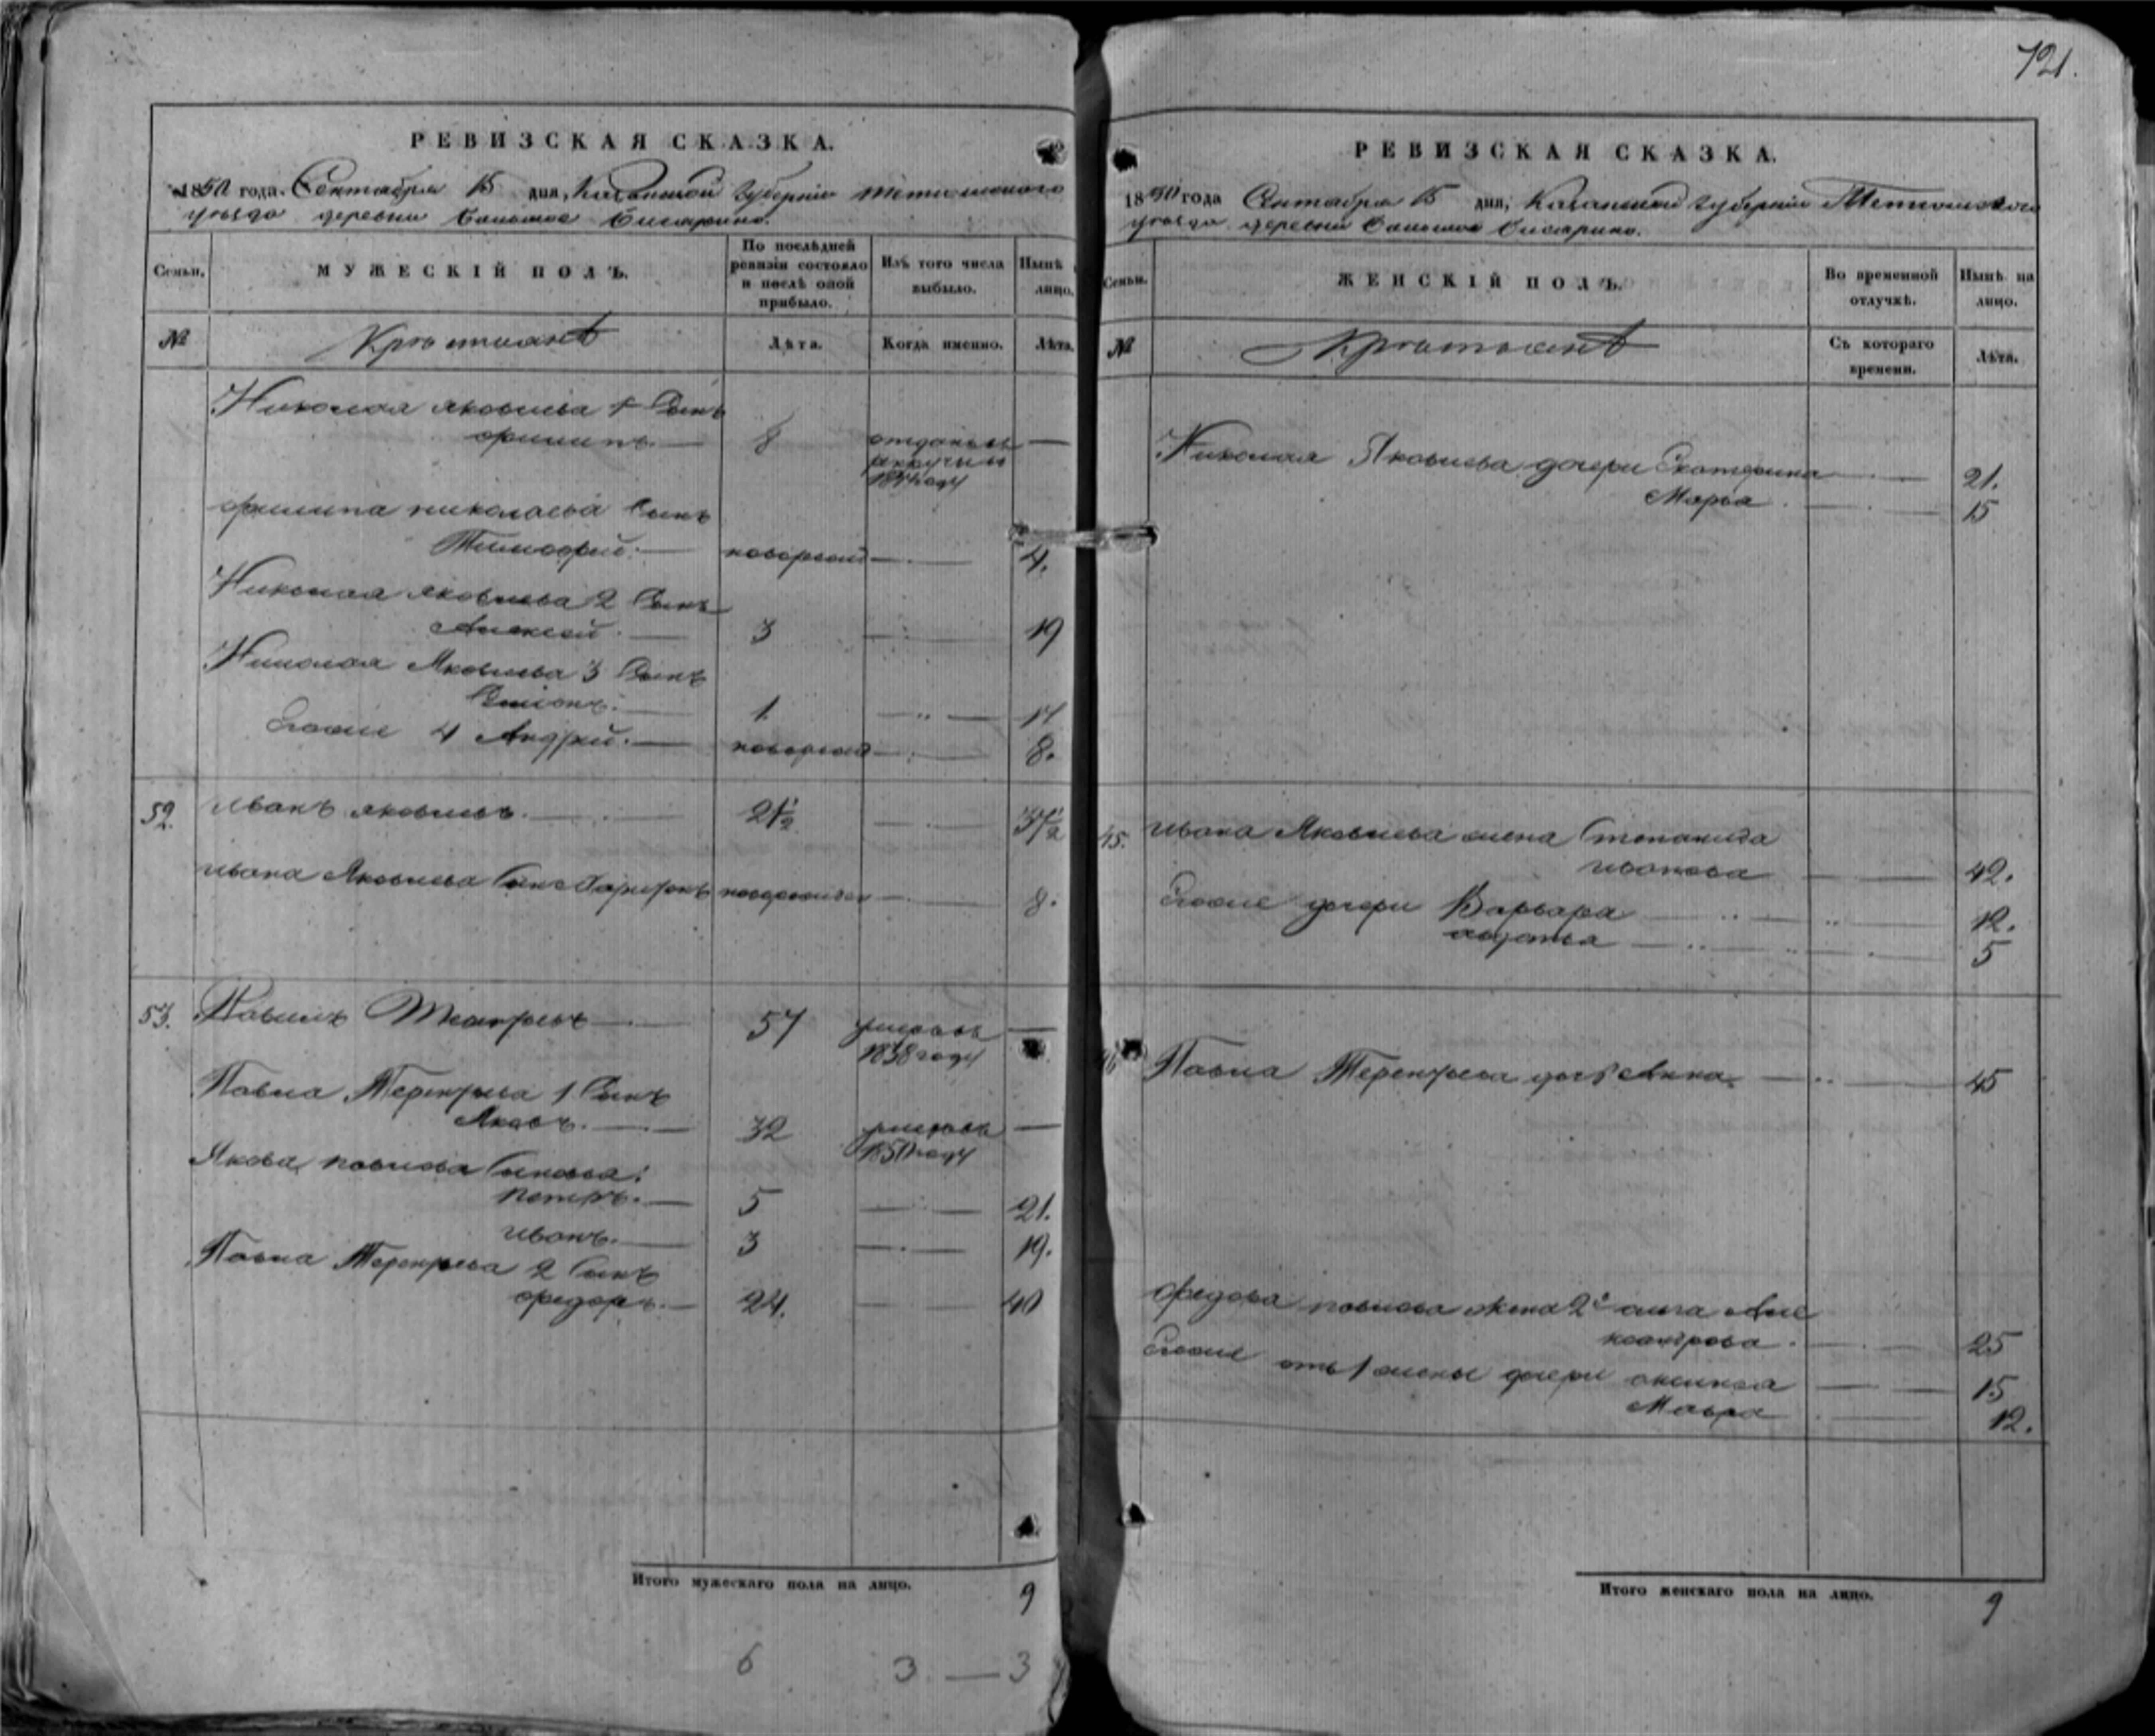 721.
РЕВИЗСКАЯ СКАЗКА.
1850 года Сентября 15 дня, Казанской Губернии Тетюшского
уезда деревни Большое
Семьи.
МУЖЕСКІЙ ПОЛЪ.
По послѣдней ревизіи состояло и послѣ оной прибыло.
Изъ того числа выбыло.
Нынѣ на лицо.
№
Крестьянъ
Лѣта.
Когда именно.
Лѣта.
Николая Яковлева 1 Сынъ
Филипъ. 8 отданъ въ
рекруты въ
году
Филипа Николаева Сынъ
Тимофей. новорож 4.
Николая Яковлева 2 Сынъ
Алексей. 3 19
Николая Яковлева 3 Сынъ
1.
Егоже 4 Андрей. новорож 8.
52. Иванъ Яковлевъ. 21½ 37½
Ивана Яковлева Сынъ новорожден 8.
53. Павелъ 57 умеръ въ
1838 году
Павла Терентьева 1 Сынъ
Яковъ. 32 умеръ въ
1850 году
Якова Павлова Сыновья:
Петръ. 5 21.
Иванъ. 3 19.
Павла Терентьева 2 Сынъ
Федоръ. 24. 40
Итого мужескаго пола на лицо. 9
6 3 — 3
РЕВИЗСКАЯ СКАЗКА.
1850 года Сентября 15 дня, Казанской Губерніи Тетюшского
уезда деревни Большое
Семьи.
ЖЕНСКІЙ ПОЛЪ.
Во временной отлучкѣ.
Нынѣ на лицо.
№
Крестьянъ
Съ котораго времени.
Лѣта.
Николая Яковлева дочери Екатерина 21.
Марья 15
45. Ивана Яковлева жена Степанида
Иванова 42.
Егоже дочери Варвара 12.
Авдотья 5
Павла Терентьева дочь Анна. 45
Федора Павлова жена 2я Ольга Але
ксандрова. 25
Егоже отъ 1 жены дочери Аксинья 15
Мавра 12.
Итого женскаго пола на лицо. 9